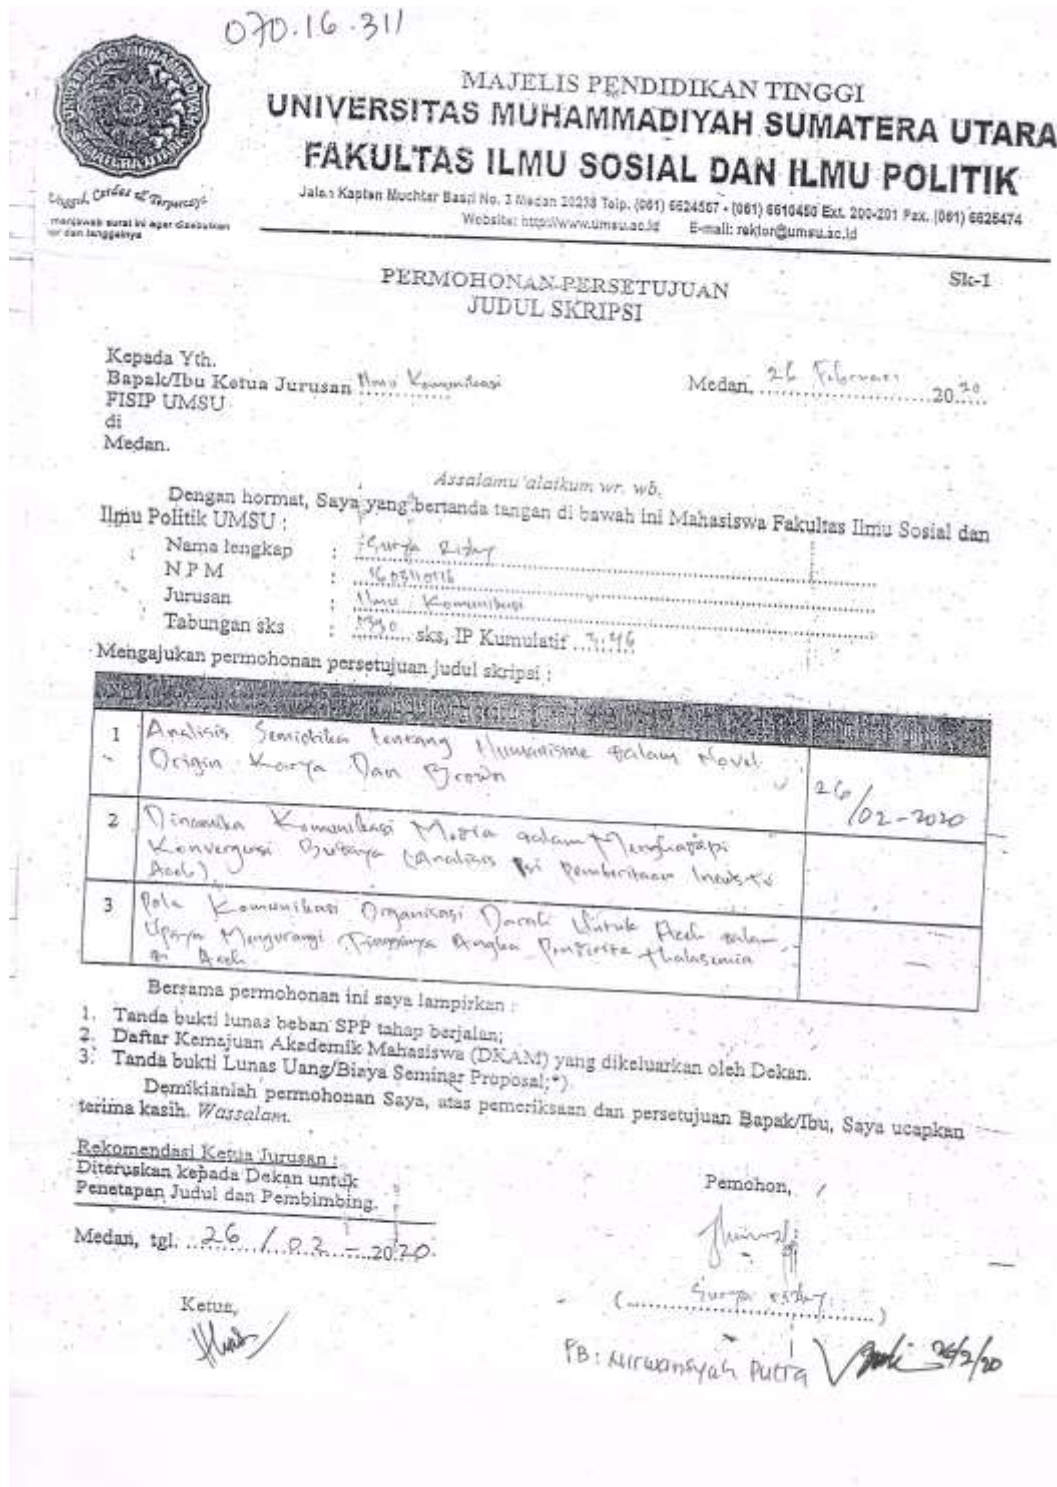 070.16.311
MAJELIS PENDIDIKAN TINGGI
UNIVERSITAS MUHAMMADIYAH SUMATERA UTARA
FAKULTAS ILMU SOSIAL DAN ILMU POLITIK
Jalan Kapten Muchtar Basri No. 3 Medan 20238 Telp. (061) 6624567 - (061) 6610450 Ext. 200-201 Fax. (061) 6625474
Website: http://www.umsu.ac.id E-mail: rektor@umsu.ac.id
Unggul, Cerdas & Terpercaya
menjawab surat ini agar disebutkan
dan tanggalnya
PERMOHONAN PERSETUJUAN
JUDUL SKRIPSI
Sk-1
Kepada Yth.
Bapak/Ibu Ketua Jurusan Ilmu Komunikasi
FISIP UMSU
di
Medan.
Medan, 26 Februari 2020
Assalamu'alaikum wr. wb.
Dengan hormat, Saya yang bertanda tangan di bawah ini Mahasiswa Fakultas Ilmu Sosial dan
Ilmu Politik UMSU :
Nama lengkap :
N P M : 1603110116
Jurusan : Ilmu Komunikasi
Tabungan sks : sks, IP Kumulatif 3,46
Mengajukan permohonan persetujuan judul skripsi :
1 Analisis Semiotika tentang Humanisme dalam Novel
Origin Karya Dan Brown
26/02-2020
2 Dinamika Komunikasi Media dalam Menghadapi
Konvergensi Budaya (Analisis Isi Pemberitaan
Aceh)
3 Pola Komunikasi Organisasi Darah Untuk Aceh dalam
Upaya Mengurangi Tingginya Angka Penderita thalasemia
di Aceh
Bersama permohonan ini saya lampirkan :
1. Tanda bukti lunas beban SPP tahap berjalan;
2. Daftar Kemajuan Akademik Mahasiswa (DKAM) yang dikeluarkan oleh Dekan.
3. Tanda bukti Lunas Uang/Biaya Seminar Proposal;*)
Demikianlah permohonan Saya, atas pemeriksaan dan persetujuan Bapak/Ibu, Saya ucapkan
terima kasih. Wassalam.
Rekomendasi Ketua Jurusan :
Diteruskan kepada Dekan untuk
Penetapan Judul dan Pembimbing.
Medan, tgl. 26 / 02 - 2020
Ketua,
Pemohon,
PB : Nirwansyah Putra 26/2/20